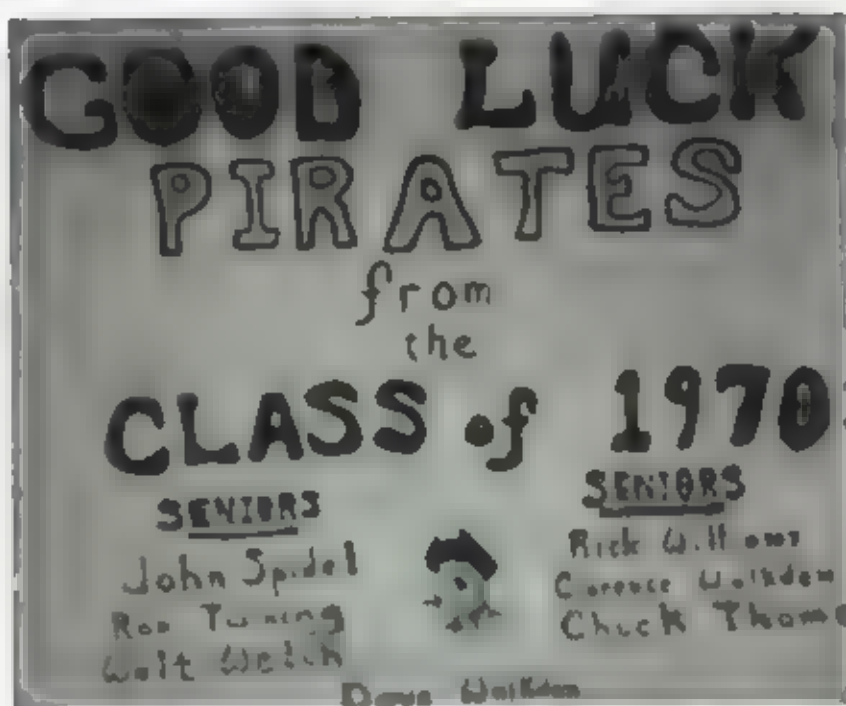 GOOD LUCK
PIRATES
from
the
CLASS of 1970
SENIORS
John Spidel
Ron Twining
Walt Welch
SENIORS
Rick Williams
Clarence Walkden
Chuck
Dave Walkden